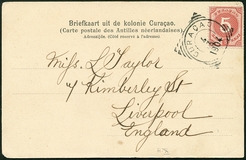 Briefkaart uit de kolonie Curaçao.
(Carte postale des Antilles néerlandaises)
Adreszijde. (Côté réservé à l'adresse)
CURACAO
5
Miss. L. Taylor
4 Kimberley St
Liverpool
England